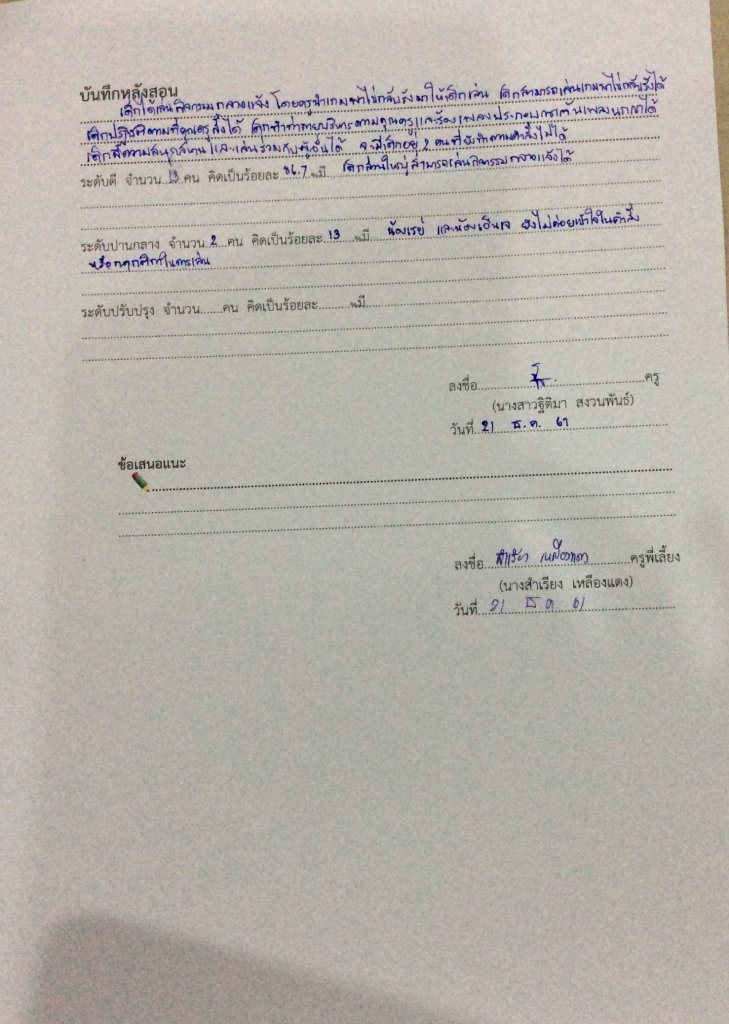 บันทึกหลังสอน
เด็กได้เล่นกิจกรรมกลางแจ้ง โดยครูนำเกมพาไข่กลับรังมาให้เด็กเล่น เด็กสามารถเล่นเกมพาไข่กลับรังได้
เด็กปฏิบัติตามที่คุณครูสั่งได้ เด็กทำท่ากายบริหารตามคุณครู และร้องเพลงประกอบการเต้นเพลงนกเขาได้
เด็กมีความสนุกสนาน และเล่นร่วมกับผู้อื่นได้ จะมีเด็กอยู่ 2 คนที่ยังทำตามคำสั่งไม่ได้
ระดับดี จำนวน 13 คน คิดเป็นร้อยละ 86.7 %มี เด็กส่วนใหญ่สามารถเล่นกิจกรรมกลางแจ้งได้
ระดับปานกลาง จำนวน 2 คน คิดเป็นร้อยละ 13 %มี น้องเรย์ และน้องเอ็นเจ ยังไม่ค่อยเข้าใจในคำสั่ง
หรือกฎกติกาในการเล่น
ระดับปรับปรุง จำนวน......คน คิดเป็นร้อยละ.........%มี
ลงชื่อ ครู
(นางสาวฐิติมา สงวนพันธ์)
วันที่ 21 ธ.ค. 61
ข้อเสนอแนะ
ลงชื่อ สำเรียง เหลืองแดง ครูพี่เลี้ยง
(นางสำเรียง เหลืองแดง)
วันที่ 21 ธ.ค. 61